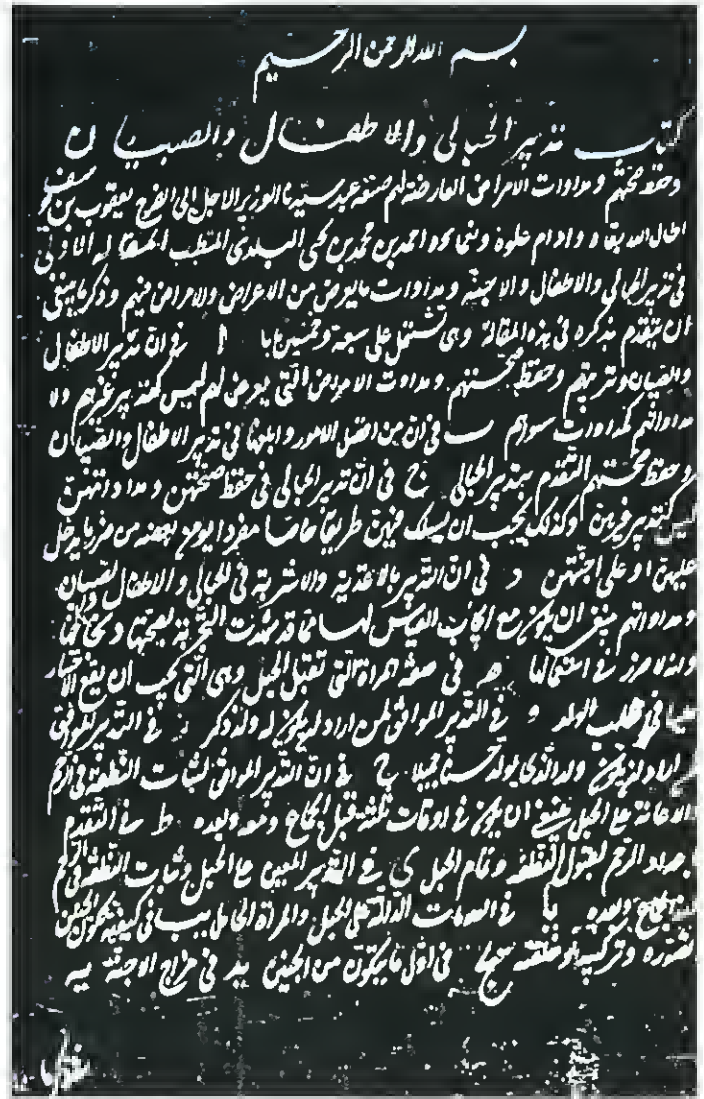 بسم الله الرحمن الرحيم
كتاب تدبير الحبالى والاطفال والصبيان
وحفظ صحتهم ومداوات الامراض العارضة لهم صنعه عبد سيدنا الوزير الاجل ابى الفرج يعقوب بن
اطال الله بقاه وادام علوه ونعماه احمد بن محمد بن يحيى البلدى المتطبب المقالة الاولى
فى تدبير الحبالى والاطفال والاجنة ومداوات مايعرض من الاعراض والامراض فيهم وذكر ماينبغى
ان يتقدم بذكره فى هذه المقالة وهى تشتمل على سبعة وخمسين بابا ا فى ان تدبير الاطفال
والصبيان وتربيتهم وحفظ صحتهم ومداوت الامراض التى يعرض لهم ليس كتدبير غيرهم ولا
مداواتهم كمداوات سواهم ب فى ان من افضل الامور وابلغها فى تدبير الاطفال والصبيان
وحفظ صحتهم التقدم بتدبير الحبالى ج فى ان تدبير الحبالى فى حفظ صحتهن ومداواتهن
ليس كتدبير غيرهن وكذلك يجب ان يسلك فيهن طريقا خاصا مفردا من ضرر مايدخل
عليهن او على اجنتهن د فى ان التدبير بالاغذية والاشربة فى الحبالى والاطفال والصبيان
ومداواتهم ينبغى ان يكون مع القياس لها مما قد شهدت التجربة بصحتها
فى استعمالها ه فى صفة المراة التى تقبل الحبل وهى التى يجب ان يقع الاختيار
عليها فى طلب الولد و فى التدبير الموافق لمن اراد ان يكون له ولد ذكر ز فى التدبير الموافق
لمن اراد ان يكون ولده الذى يولد حسنا جميلا ح فى ان التدبير الموافق لثبات النطفة فى الرحم
والاعانة على الحبل ينبغى ان يكون فى اوقات ثلثة قبل الجماع ومعه وبعده ط فى التقدم
باعداد الرحم لقبول النطفة وتمام الحبل ى فى التدبير المعين على الحبل وثبات النطفة فى الرحم
الجماع وبعده يا فى العلامات الدالة على الحبل والمراة الحامل يب فى كيفية تكون الجنين
وتركيبه وخلقته يج فى اول مايتكون من الجنين يد فى مزاج الاجنة يه